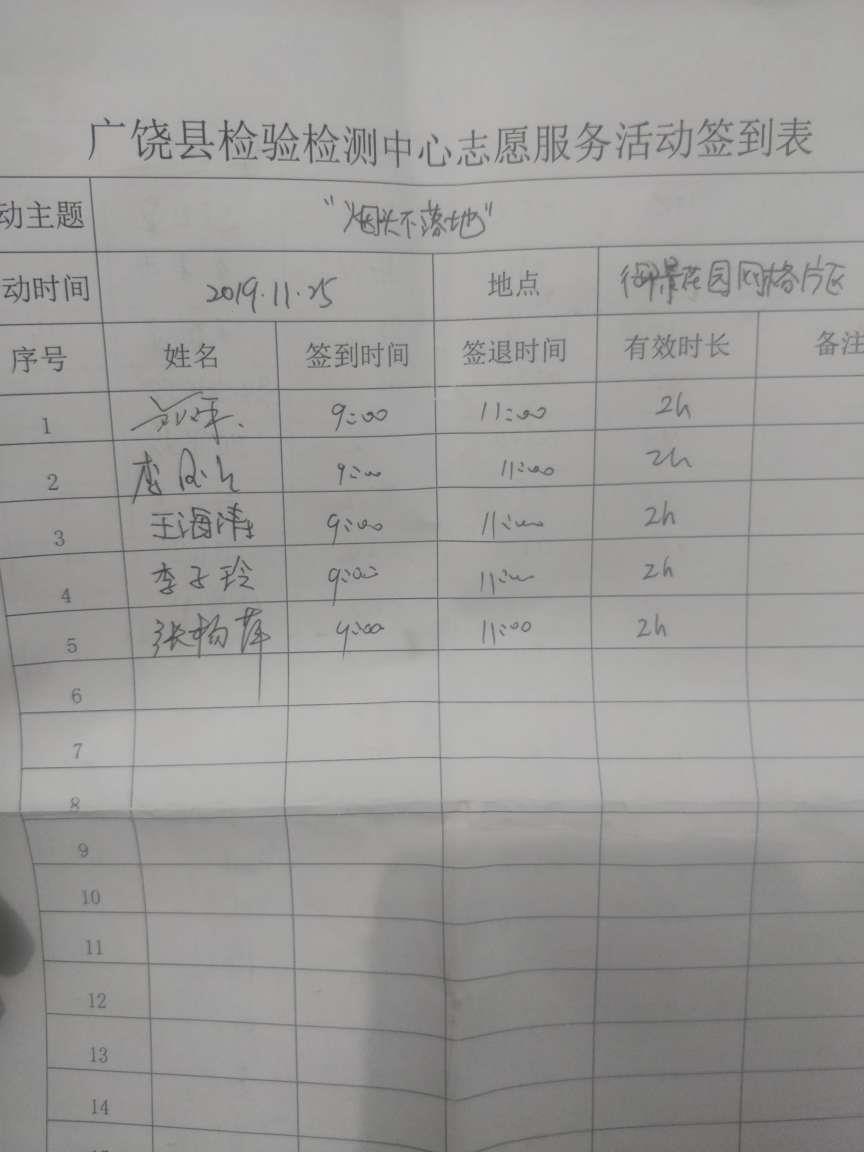 广饶县检验检测中心志愿服务活动签到表
动主题 "烟头不落地"
动时间 2019.11.25 地点 御景花园网格片区
序号 姓名 签到时间 签退时间 有效时长 备注
1 9:00 11:00 2h
2 李 9:00 11:00 2h
3 王海清 9:00 11:00 2h
4 李子玲 9:00 11:00 2h
5 张杨萍 9:00 11:00 2h
6
7
8
9
10
11
12
13
14